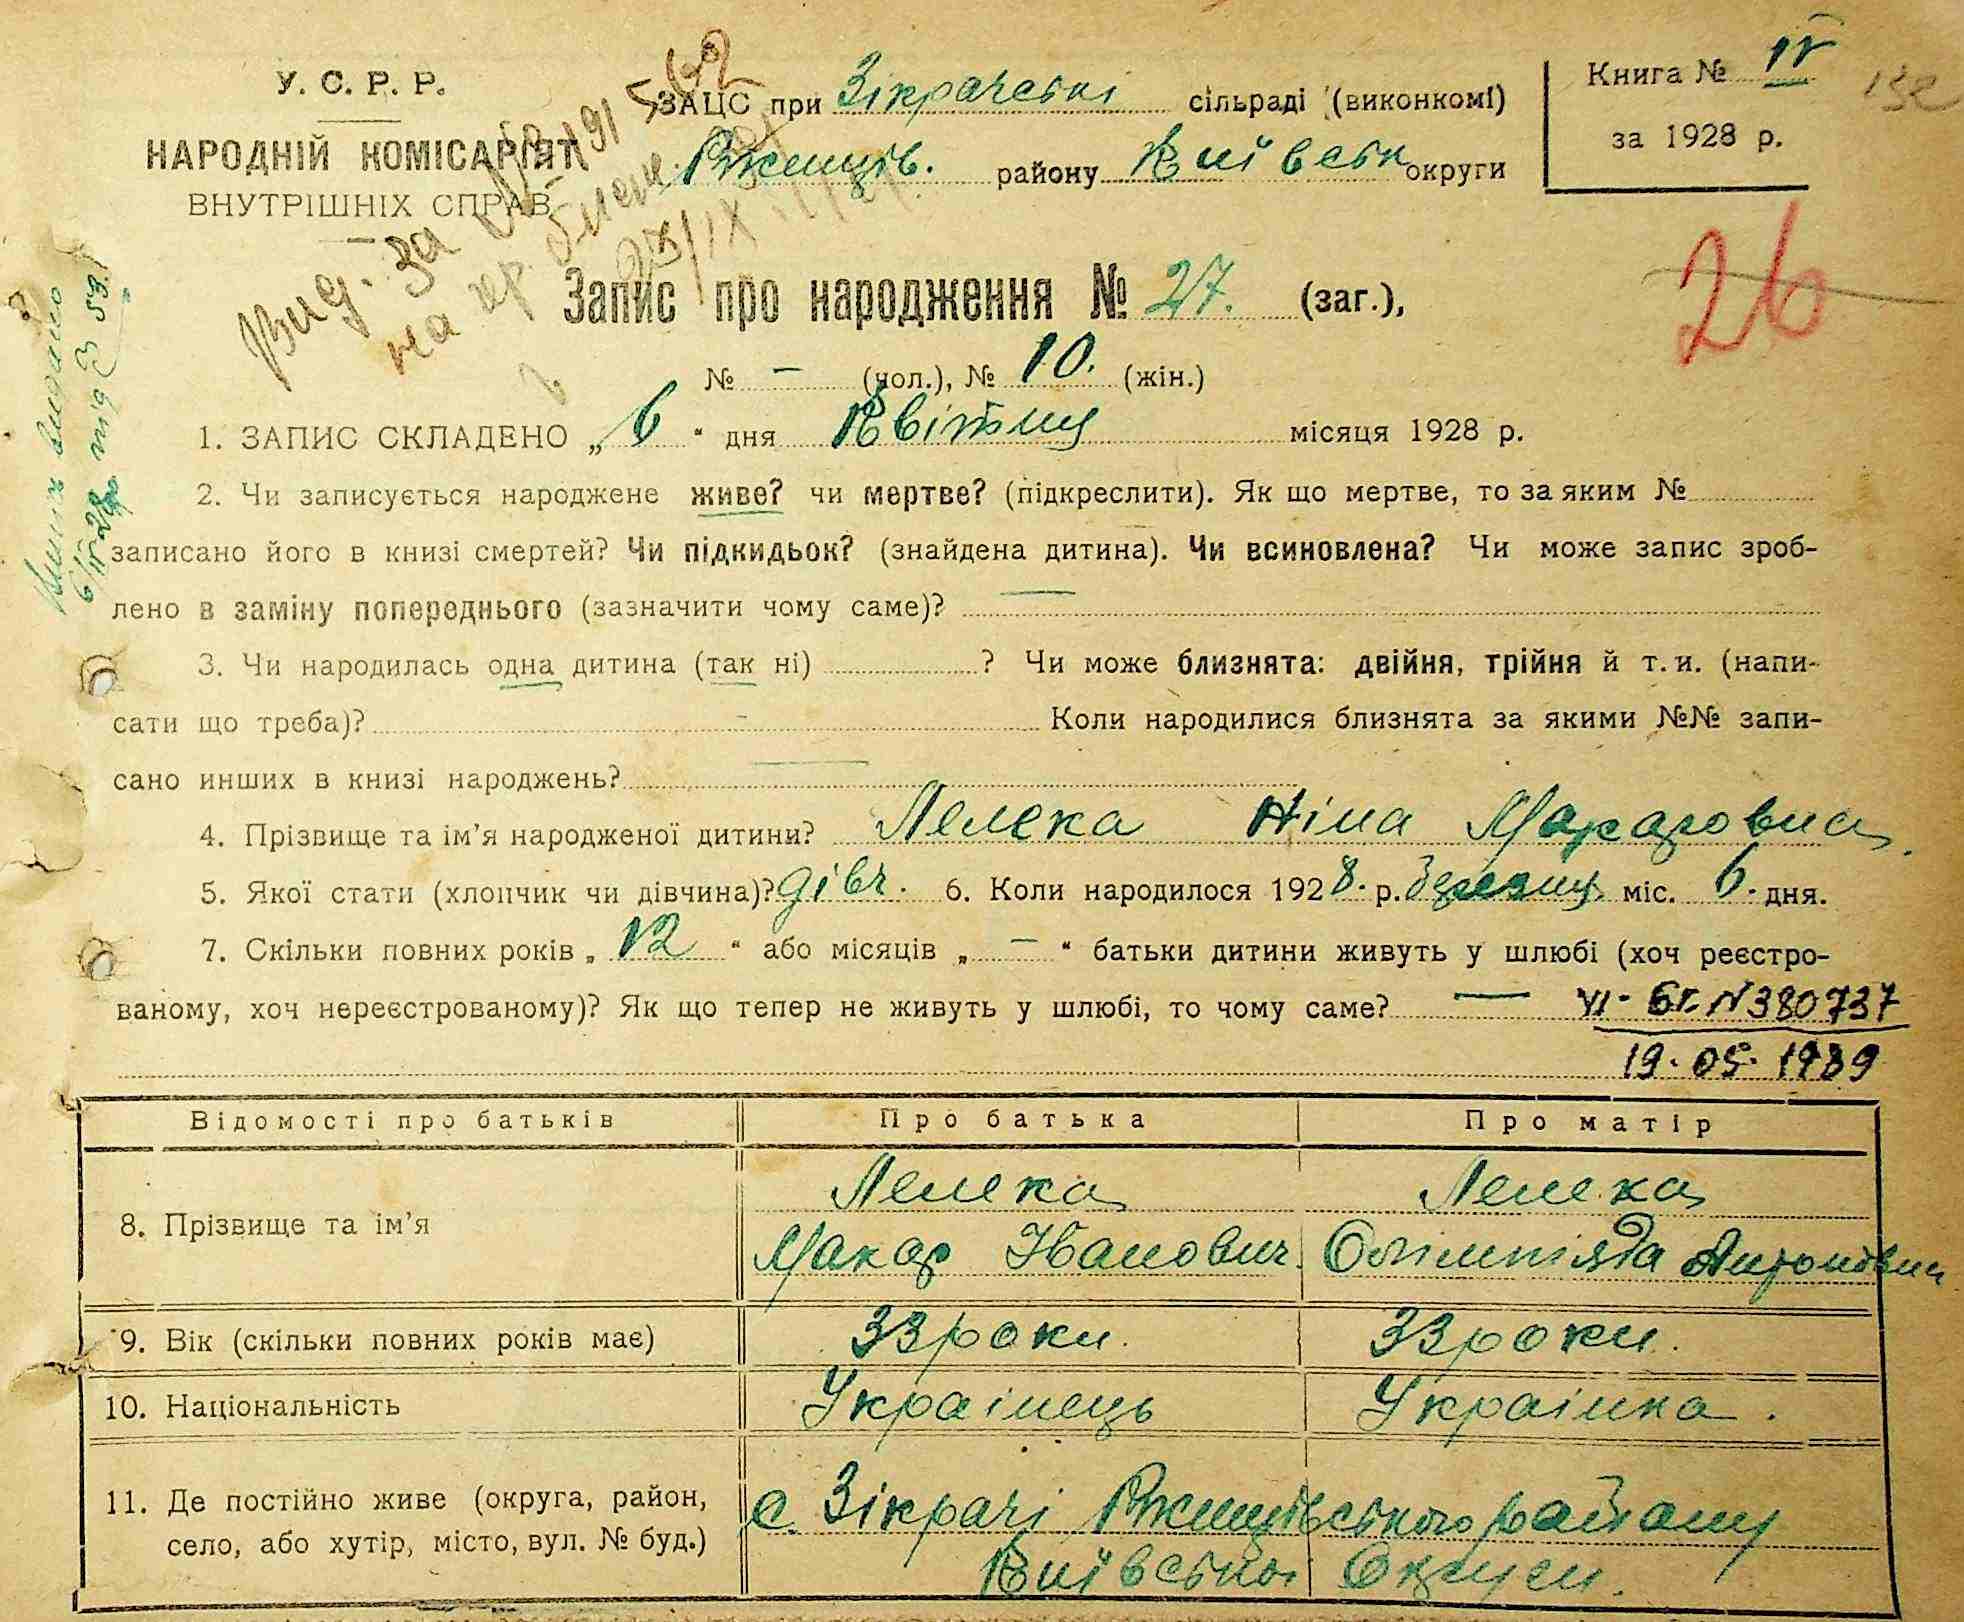 У. С. Р. Р.
НАРОДНІЙ КОМІСАРІЯТ
ВНУТРІШНІХ СПРАВ
ЗАЦС при Зікраческі сільраді (виконкомі)
Ржищів. району Київськ округи
Книга № IV
за 1928 р.
132
26
Вид. за №
на
Запис про народження № 27. (заг.),
№ — (чол.), № 10. (жін.)
1. ЗАПИС СКЛАДЕНО „ 6 “ дня Квітня місяця 1928 р.
2. Чи записується народжене живе? чи мертве? (підкреслити). Як що мертве, то за яким №
записано його в книзі смертей? Чи підкидьок? (знайдена дитина). Чи всиновлена? Чи може запис зроб-
лено в заміну попереднього (зазначити чому саме)? —
3. Чи народилась одна дитина (так ні) ? Чи може близнята: двійня, трійня й т. и. (напи-
сати що треба)? - Коли народилися близнята за якими №№ запи-
сано инших в книзі народжень? —
4. Прізвище та ім’я народженої дитини? Лелека Ніна Макаровна.
5. Якої стати (хлопчик чи дівчина)? дівч. 6. Коли народилося 1928. р. березня міс. 6. дня.
7. Скільки повних років „ 12 “ або місяців „ — “ батьки дитини живуть у шлюбі (хоч реєстро-
ваному, хоч нереєстрованому)? Як що тепер не живуть у шлюбі, то чому саме? — VI-БК N 380737
19.05.1989
Відомості про батьків Про батька Про матір
8. Прізвище та ім’я
Лелека
Макар Іванович
Лелека
Олімпіяда
9. Вік (скільки повних років має) 33 роки. 33 роки.
10. Національність Українець Українка.
11. Де постійно живе (округа, район,
село, або хутір, місто, вул. № буд.)
с. Зікрачі Ржищівського району
Київської Округи.
Випис видано
6/IV 28р під 3 59.